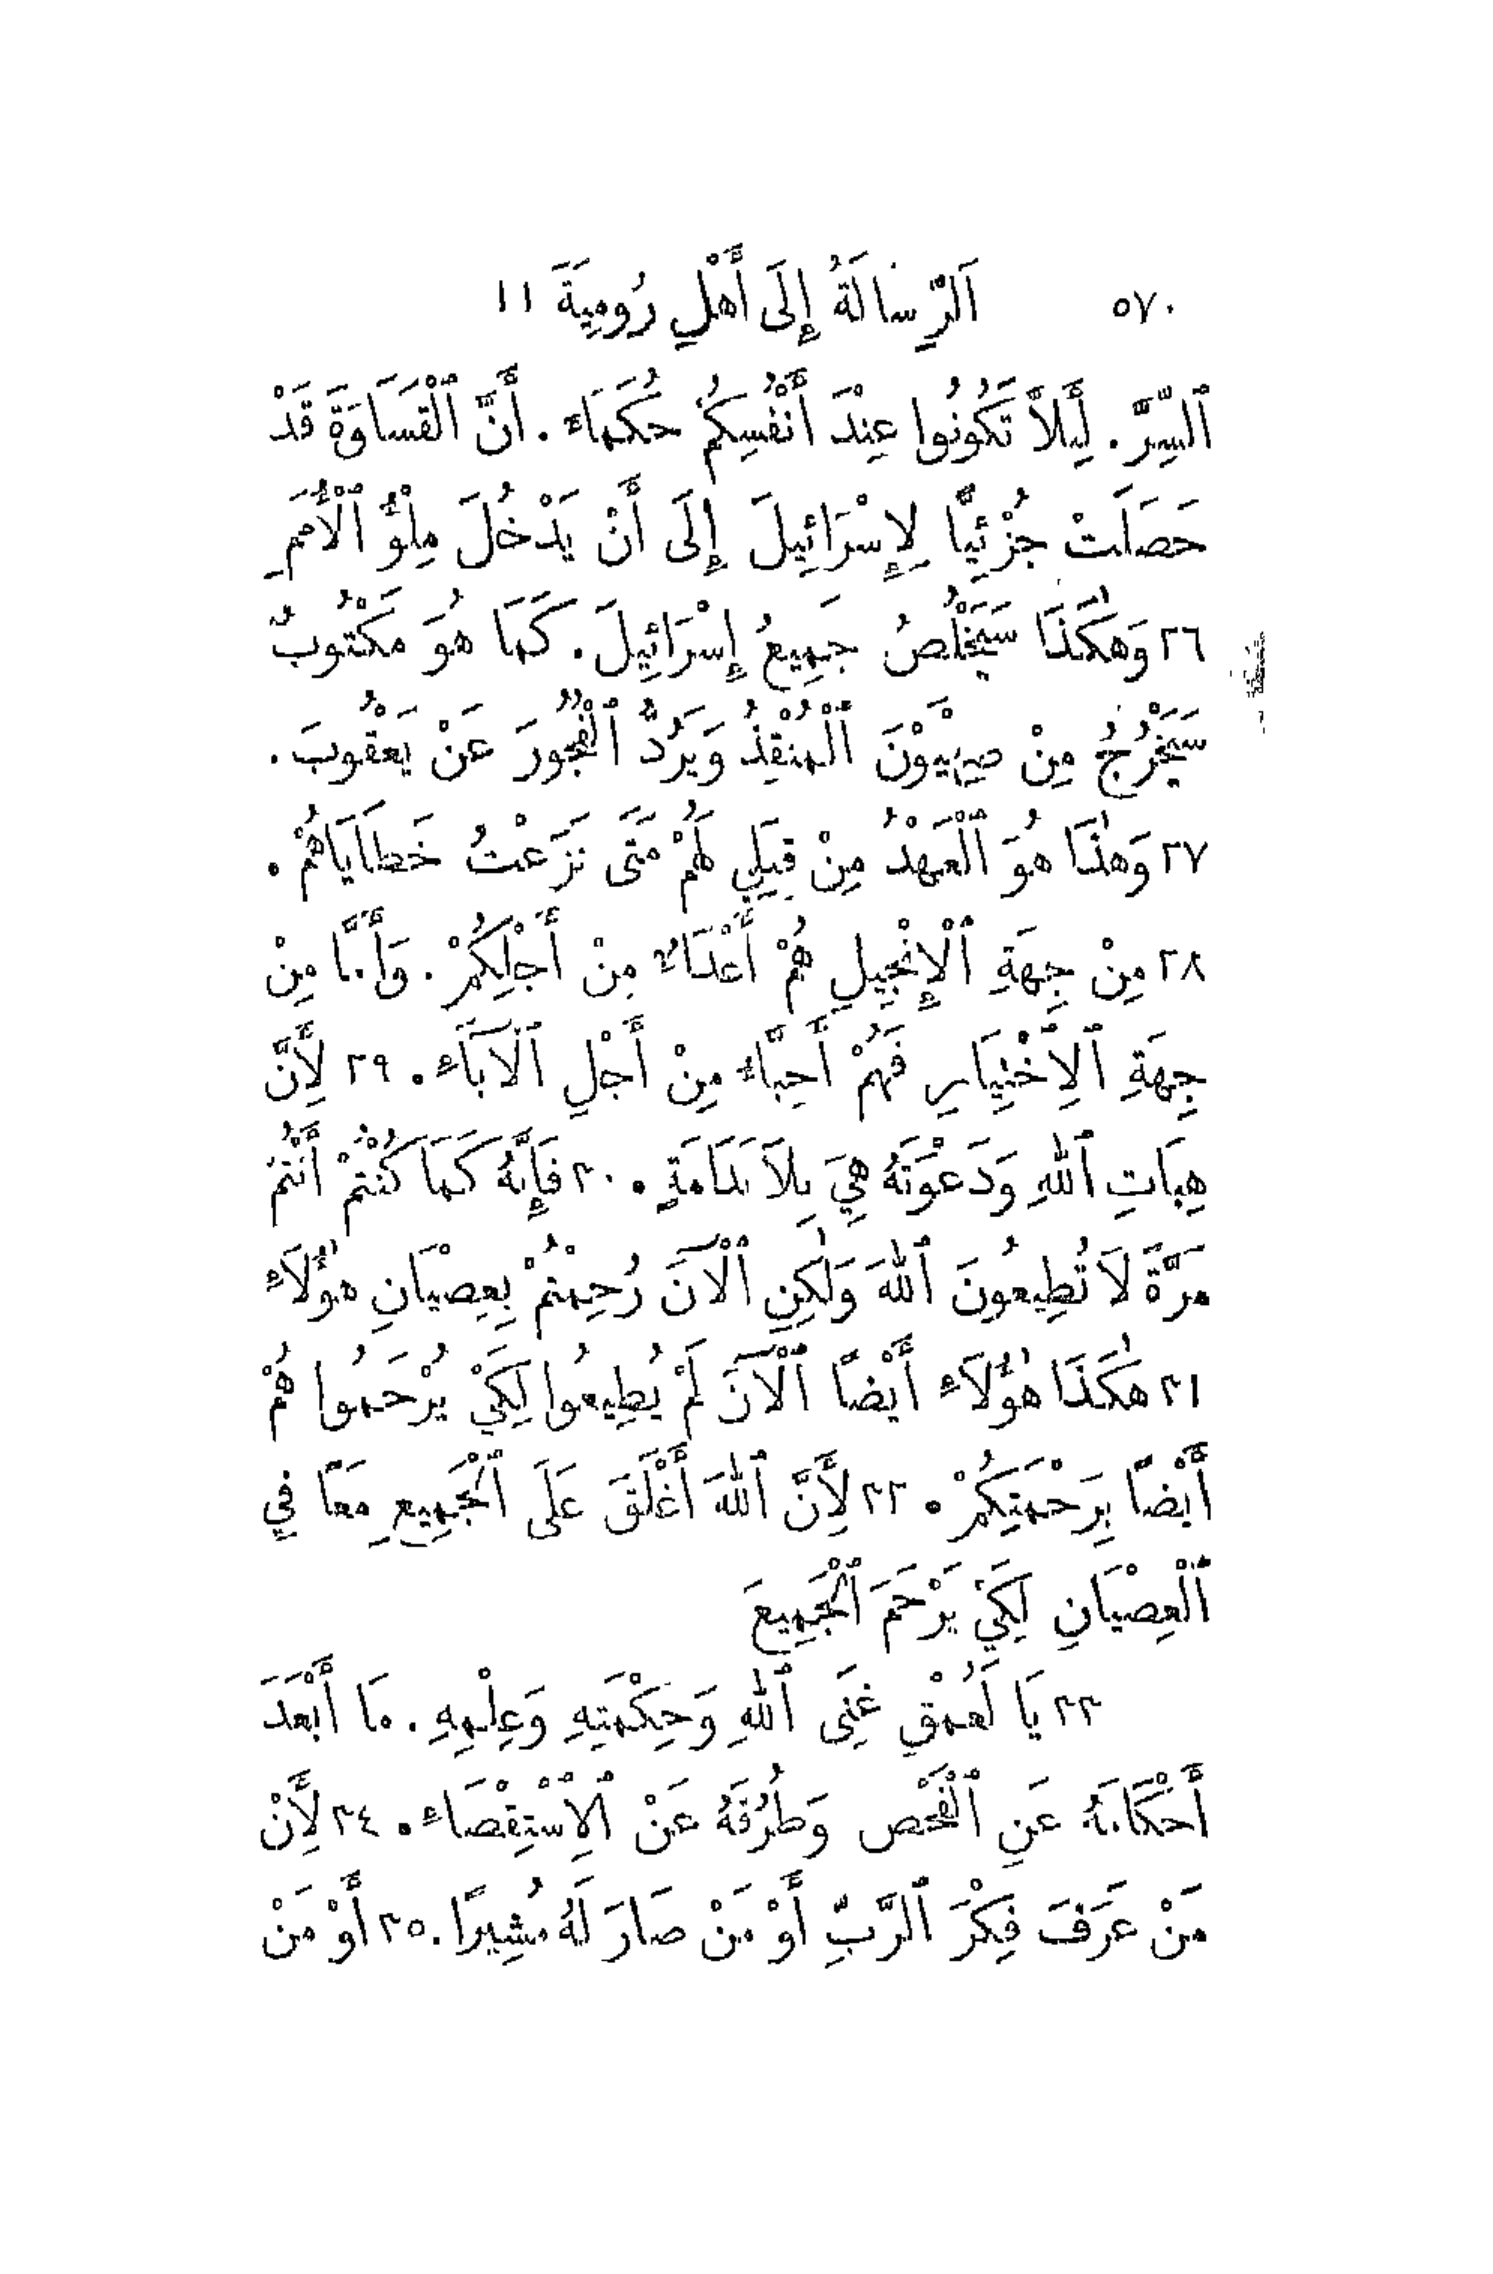 ٥٧٠ اَلرِّسَالَةُ إِلَى أَهْلِ رُومِيَةَ ١١
ٱلسِّرَّ. لِئَلاَّ تَكُونُوا عِنْدَ أَنْفُسِكُمْ حُكَمَاءَ. أَنَّ ٱلْقَسَاوَةَ قَدْ
حَصَلَتْ جُزْئِيًّا لِإِسْرَائِيلَ إِلَى أَنْ يَدْخُلَ مِلْؤُ ٱلْأُمَمِ
٢٦ وَهٰكَذَا سَيَخْلُصُ جَمِيعُ إِسْرَائِيلَ. كَمَا هُوَ مَكْتُوبٌ
سَيَخْرُجُ مِنْ صِهْيَوْنَ ٱلْمُنْقِذُ وَيَرُدُّ ٱلْفُجُورَ عَنْ يَعْقُوبَ.
٢٧ وَهٰذَا هُوَ ٱلْعَهْدُ مِنْ قِبَلِي لَهُمْ مَتَى نَزَعْتُ خَطَايَاهُمْ.
٢٨ مِنْ جِهَةِ ٱلْإِنْجِيلِ هُمْ أَعْدَاءٌ مِنْ أَجْلِكُمْ. وَأَمَّا مِنْ
جِهَةِ ٱلِٱخْتِيَارِ فَهُمْ أَحِبَّاءُ مِنْ أَجْلِ ٱلْآبَاءِ. ٢٩ لِأَنَّ
هِبَاتِ ٱللهِ وَدَعْوَتَهُ هِيَ بِلاَ نَدَامَةٍ. ٣٠ فَإِنَّهُ كَمَا كُنْتُمْ أَنْتُمْ
مَرَّةً لاَ تُطِيعُونَ ٱللهَ وَلٰكِنِ ٱلْآنَ رُحِمْتُمْ بِعِصْيَانِ هٰؤُلاَءِ
٣١ هٰكَذَا هٰؤُلاَءِ أَيْضًا ٱلْآنَ لَمْ يُطِيعُوا لِكَيْ يُرْحَمُوا هُمْ
أَيْضًا بِرَحْمَتِكُمْ. ٣٢ لِأَنَّ ٱللهَ أَغْلَقَ عَلَى ٱلْجَمِيعِ مَعًا فِي
ٱلْعِصْيَانِ لِكَيْ يَرْحَمَ ٱلْجَمِيعَ
٣٣ يَا لَعُمْقِ غِنَى ٱللهِ وَحِكْمَتِهِ وَعِلْمِهِ. مَا أَبْعَدَ
أَحْكَامَهُ عَنِ ٱلْفَحْصِ وَطُرُقَهُ عَنْ ٱلِٱسْتِقْصَاءِ. ٣٤ لِأَنْ
مَنْ عَرَفَ فِكْرَ ٱلرَّبِّ أَوْ مَنْ صَارَ لَهُ مُشِيرًا. ٣٥ أَوْ مَنْ